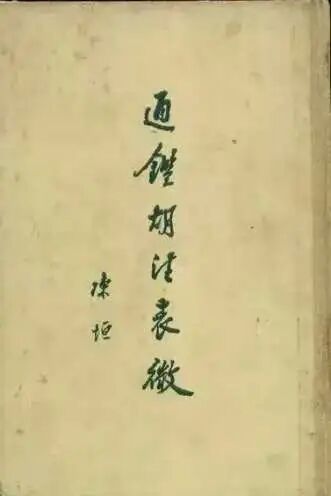 通鑑胡注表微
陳垣